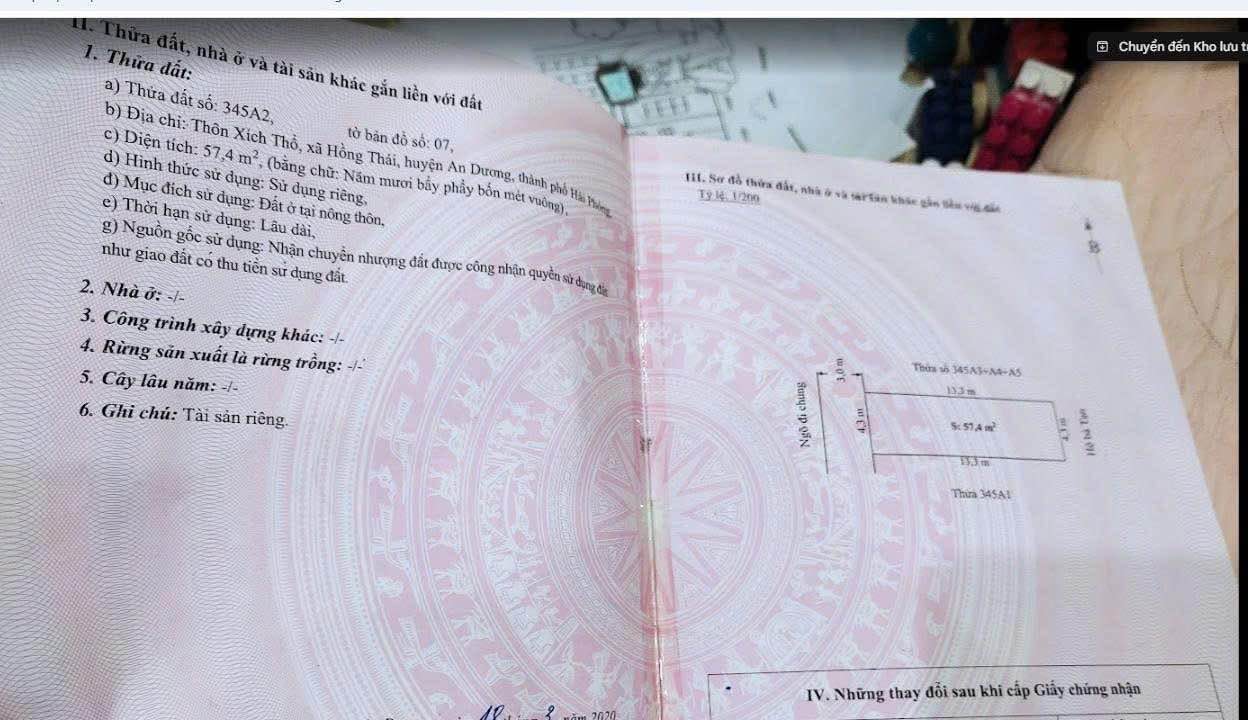 Chuyển đến Kho lưu t
II. Thửa đất, nhà ở và tài sản khác gắn liền với đất
1. Thửa đất:
a) Thửa đất số: 345A2, tờ bản đồ số: 07,
b) Địa chỉ: Thôn Xích Thổ, xã Hồng Thái, huyện An Dương, thành phố Hải Phòng
c) Diện tích: 57,4 m², (bằng chữ: Năm mươi bẩy phẩy bốn mét vuông),
d) Hình thức sử dụng: Sử dụng riêng,
đ) Mục đích sử dụng: Đất ở tại nông thôn,
e) Thời hạn sử dụng: Lâu dài,
g) Nguồn gốc sử dụng: Nhận chuyển nhượng đất được công nhận quyền sử dụng đất
như giao đất có thu tiền sử dụng đất.
2. Nhà ở: -/-
3. Công trình xây dựng khác: -/-
4. Rừng sản xuất là rừng trồng: -/-
5. Cây lâu năm: -/-
6. Ghi chú: Tài sản riêng.
18 2 năm 2020
III. Sơ đồ thửa đất, nhà ở và tài sản khác gắn liền với đất
Tỷ lệ: 1/200
B
Thửa số 345A3+A4+A5
3,0 m
13,3 m
Ngõ đi chung
4,3 m
S: 57,4 m²
4,3 m
Hộ bà Tơn
13,3 m
Thửa 345A1
IV. Những thay đổi sau khi cấp Giấy chứng nhận